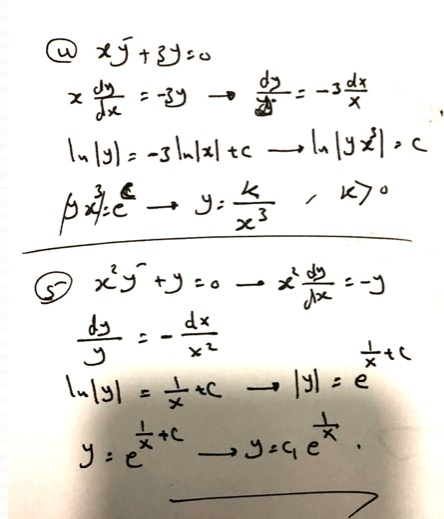 ④ xy' + 3y = 0
x dy/dx = -3y → dy/y = -3 dx/x
ln|y| = -3 ln|x| + c → ln|yx³| = c
|yx³| = e^c → y = k/x³ , k > 0
⑤ x²y' + y = 0 → x² dy/dx = -y
dy/y = - dx/x²
ln|y| = 1/x + c → |y| = e^(1/x + c)
y = e^(1/x + c) → y = c₁ e^(1/x) .